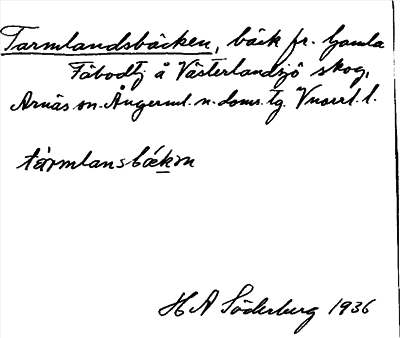 Tarmlandsbäcken, bäck fr. Gamla
Fäbodtj å Västerlandsjö skog,
Arnäs sn. Ångerml. n. doms. tg. Vnorrl. l.
tármlansbækən
H A Söderberg 1936